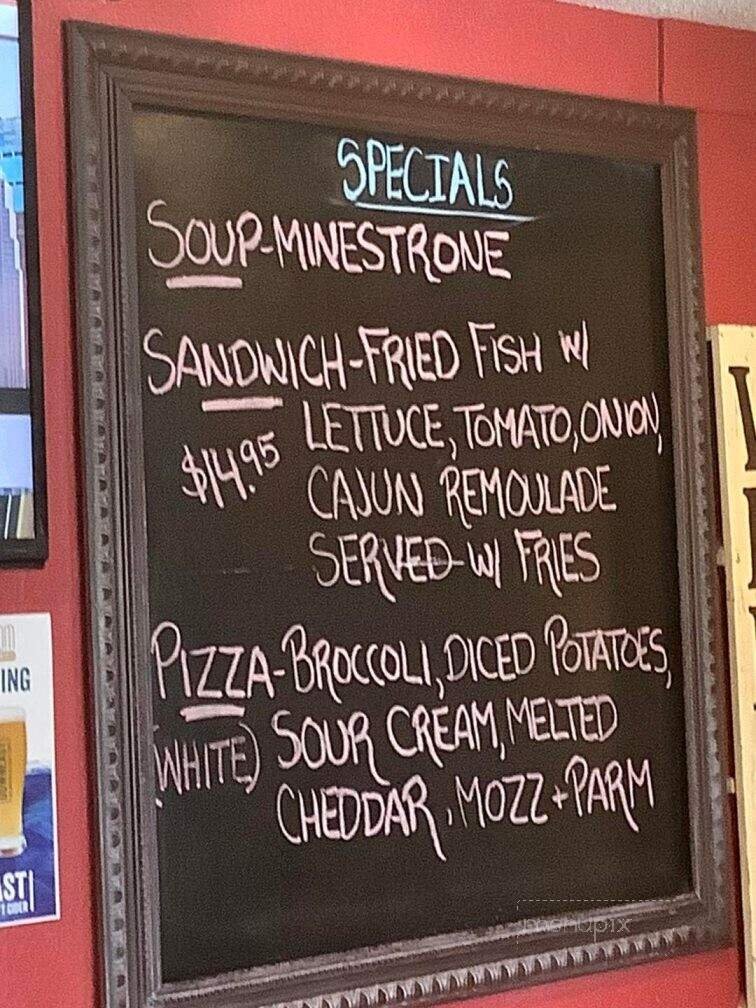 SPECIALS
SOUP-MINESTRONE
SANDWICH-FRIED FISH W/
$14.95 LETTUCE, TOMATO, ONION,
CAJUN REMOULADE
SERVED W/ FRIES
PIZZA-BROCCOLI, DICED POTATOES,
(WHITE) SOUR CREAM, MELTED
CHEDDAR, MOZZ+PARM
ING
AST
menupix